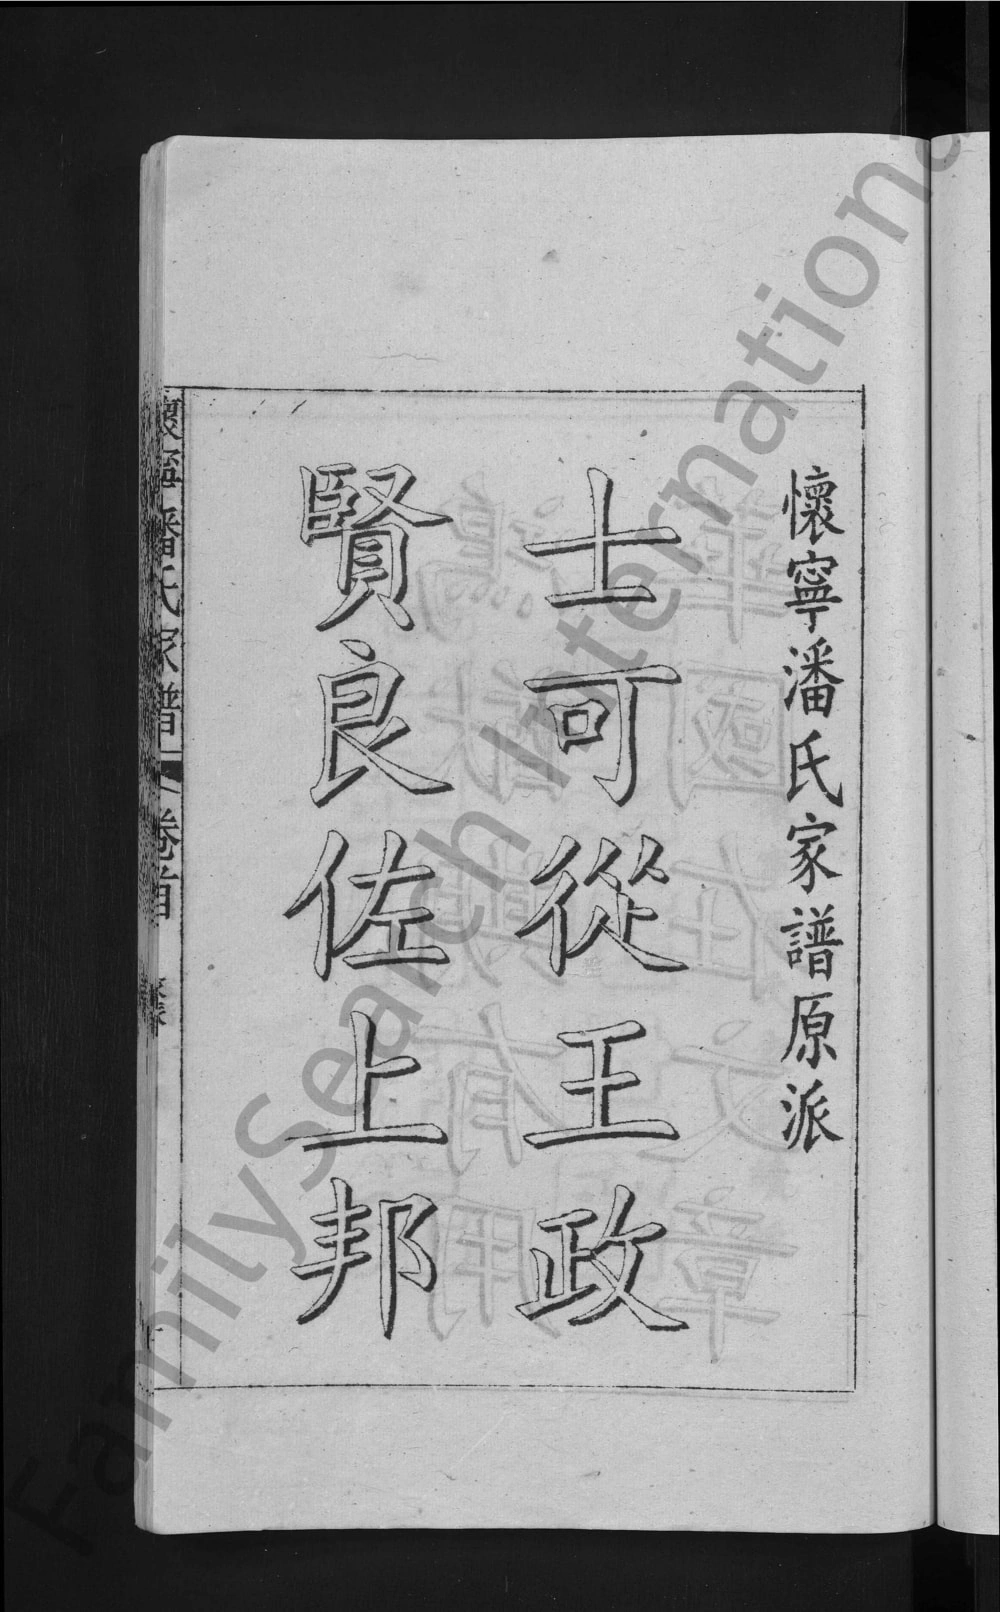 懷寧潘氏家譜原派
士可從王政
賢良佐上邦
懷寧潘氏家譜 卷首
FamilySearch International